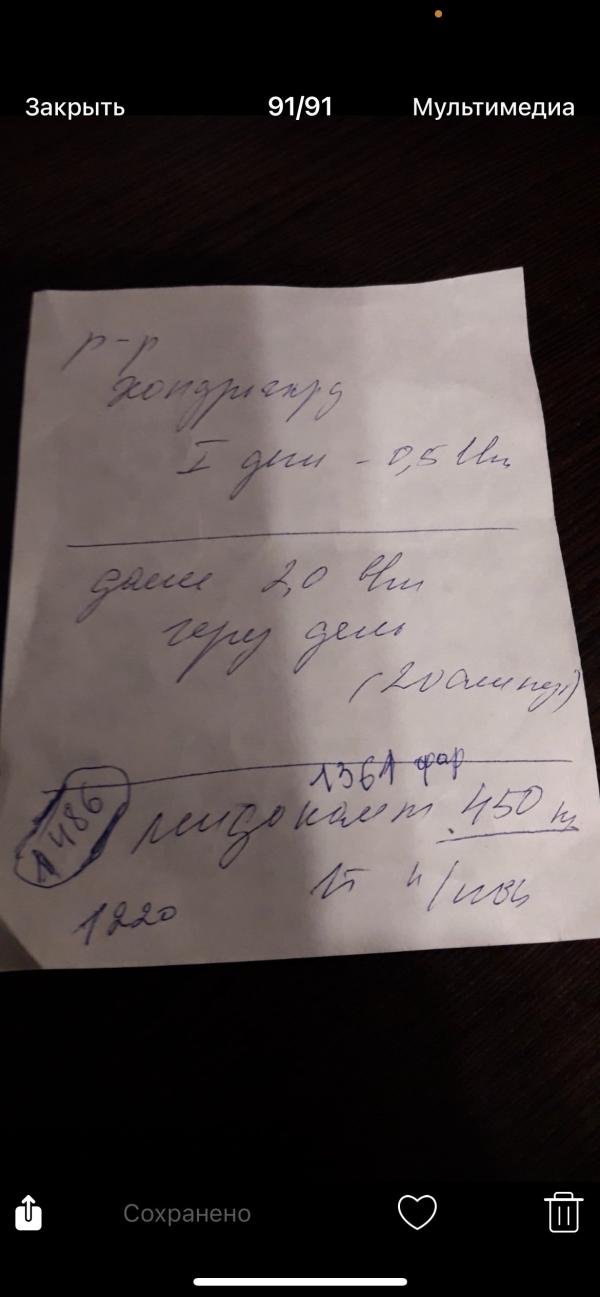 Закрыть 91/91 Мультимедиа
р-р
Хондрогард
I день - 0,5 в/м
далее 2,0 в/м
через день
1361 фар
1486 мидокалм 450
1220 1т н/ночь
Сохранено